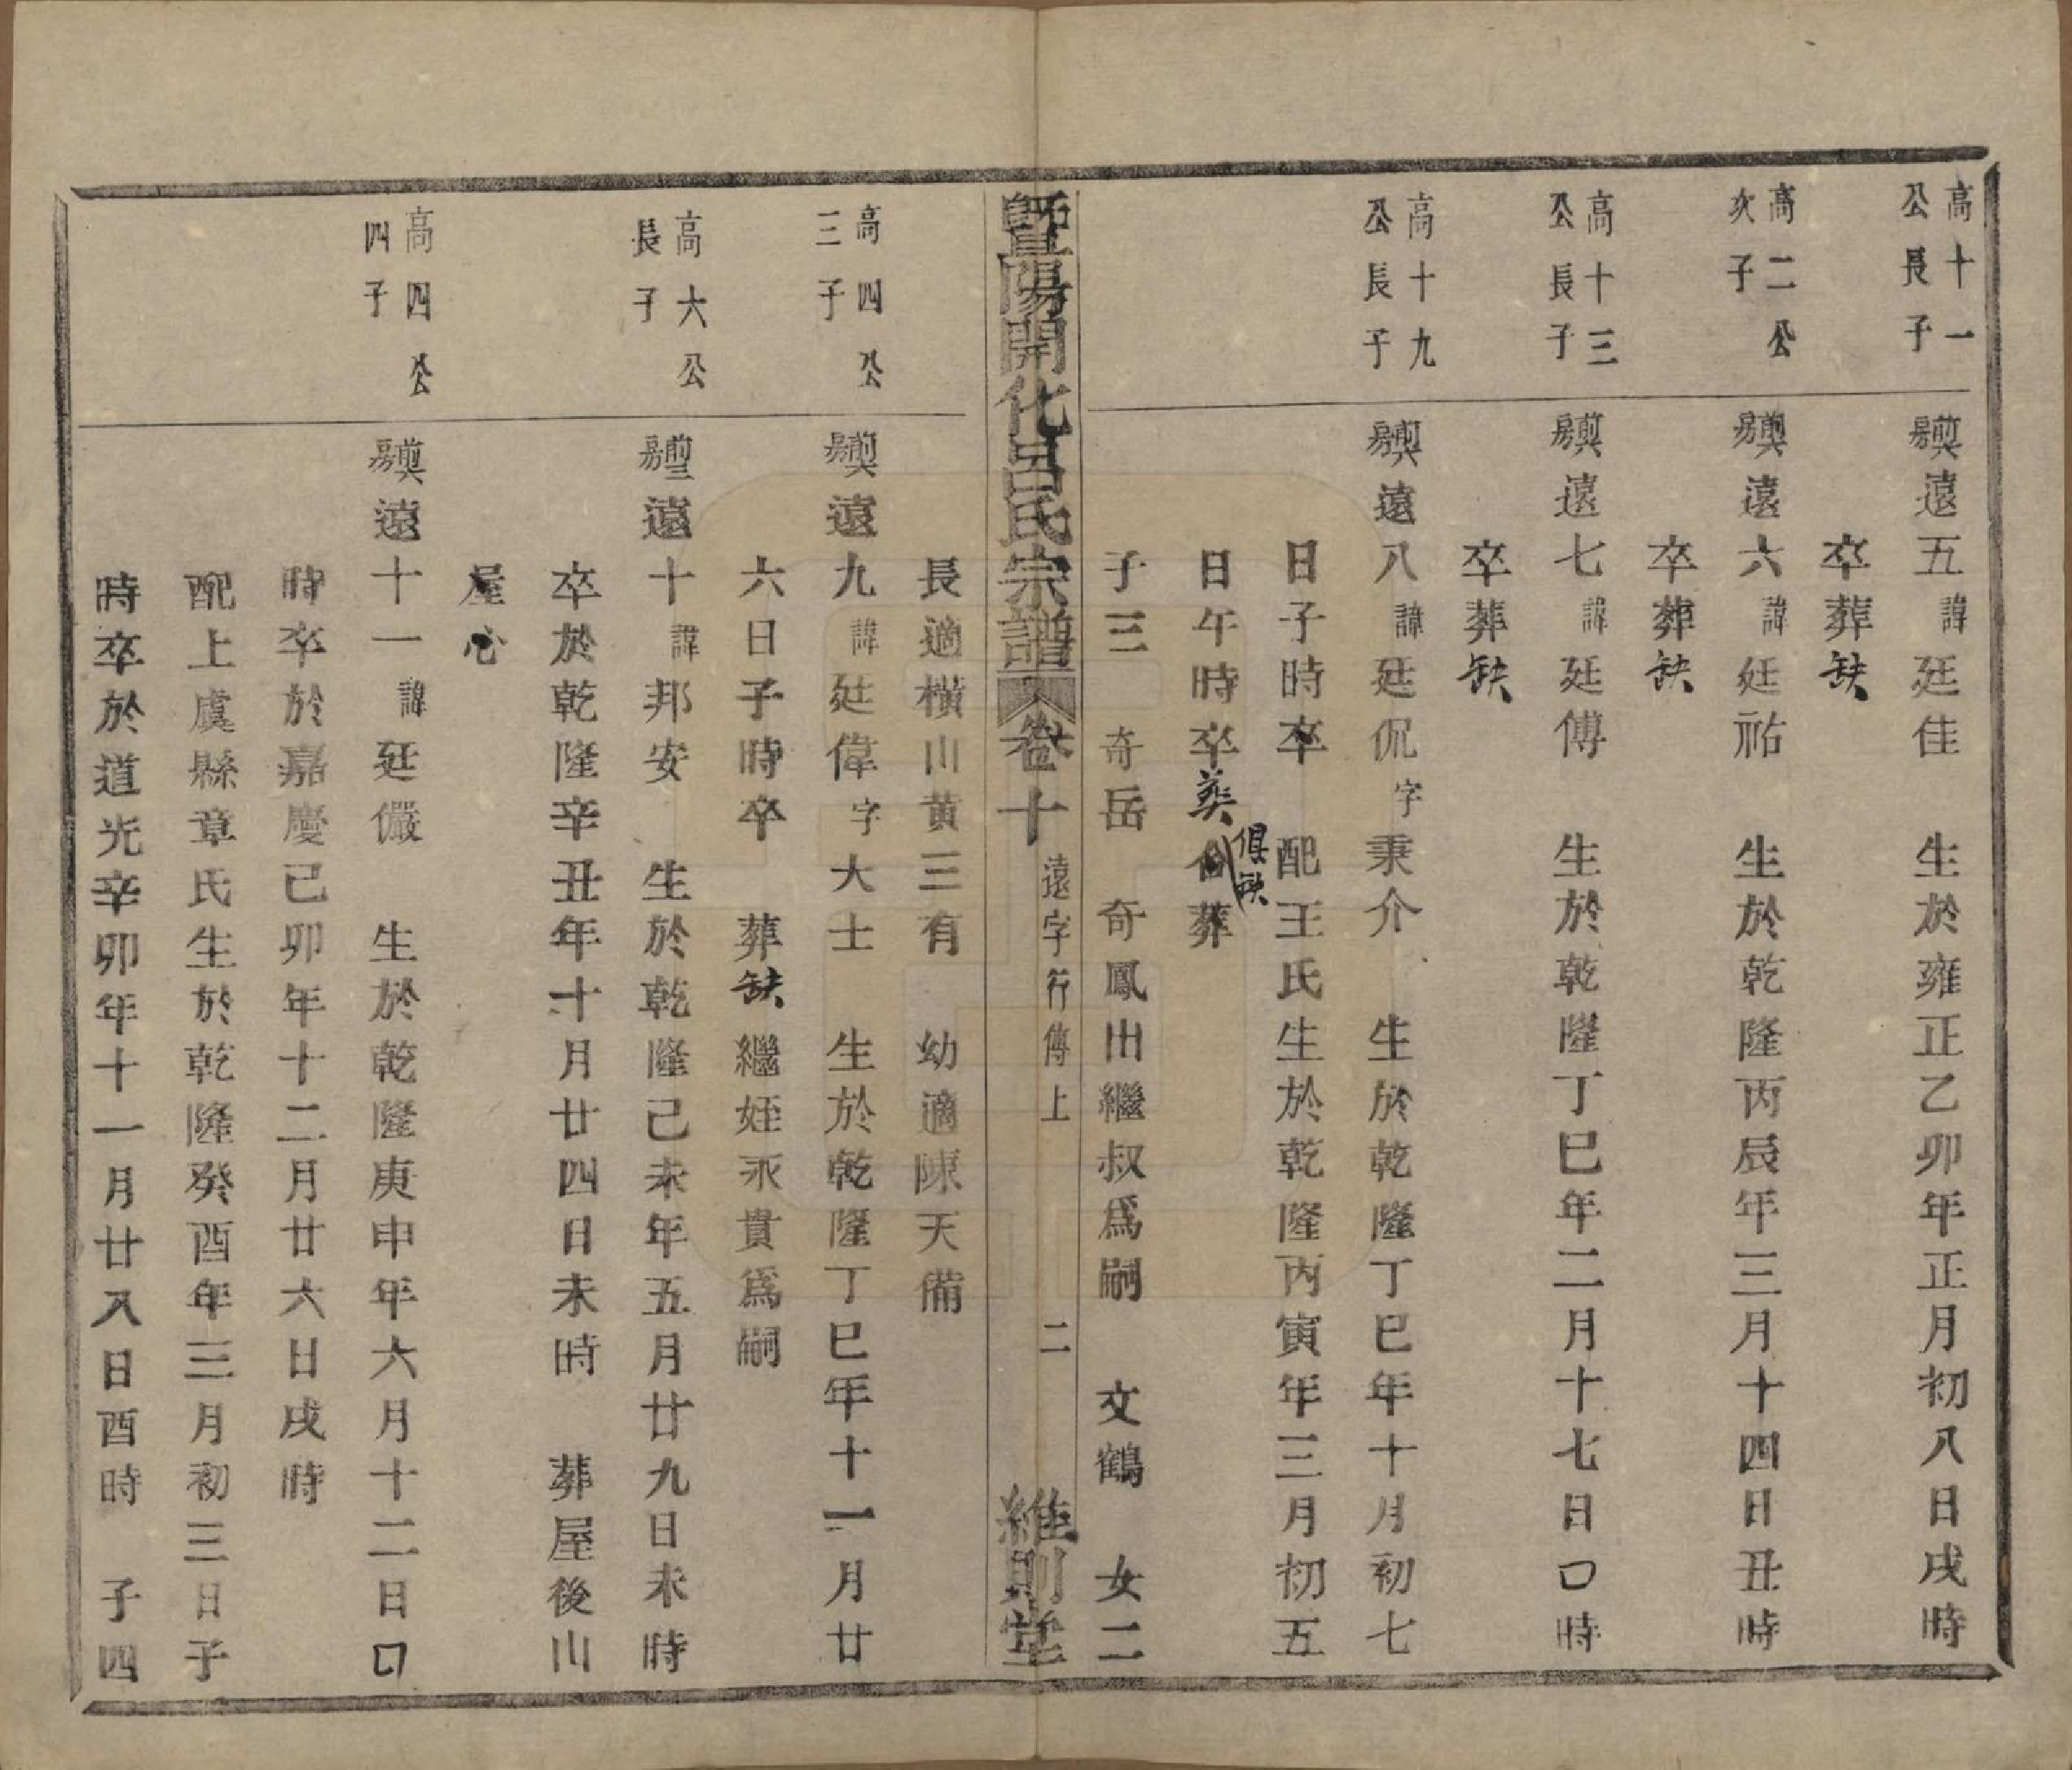 高十一
公長子
奠剪房遠五諱廷佳　生於雍正乙卯年正月初八日戌時
卒葬缺
高二公
次子
奠剪房遠六諱廷祐　生於乾隆丙辰年三月十四日丑時
卒葬缺
高十三
公長子
奠剪房遠七諱廷傅　生於乾隆丁巳年二月十七日口時
卒葬缺
高十九
公長子
奠剪房遠八諱廷侃字秉介　生於乾隆丁巳年十月初七
日子時卒　配王氏生於乾隆丙寅年三月初五
日午時卒葬合葬俱缺
子三　奇岳　奇鳳出繼叔爲嗣　文鶴　女二
暨陽開化呂氏宗譜
卷十　遠字行傳上　二　維則堂
長適橫山黃三有　幼適陳天備
高四公
三子
遠九諱廷偉字大士　生於乾隆丁巳年十一月廿
六日子時卒　葬缺　繼姪永貴爲嗣
高六公
長子
遠十諱邦安　生於乾隆己未年五月廿九日未時
卒於乾隆辛丑年十月廿四日未時　葬屋後山
屋心
高四公
四子
遠十一諱廷儼　生於乾隆庚申年六月十二日口
時卒於嘉慶己卯年十二月廿六日戌時
配上虞縣章氏生於乾隆癸酉年三月初三日子
時卒於道光辛卯年十一月廿八日酉時　子四